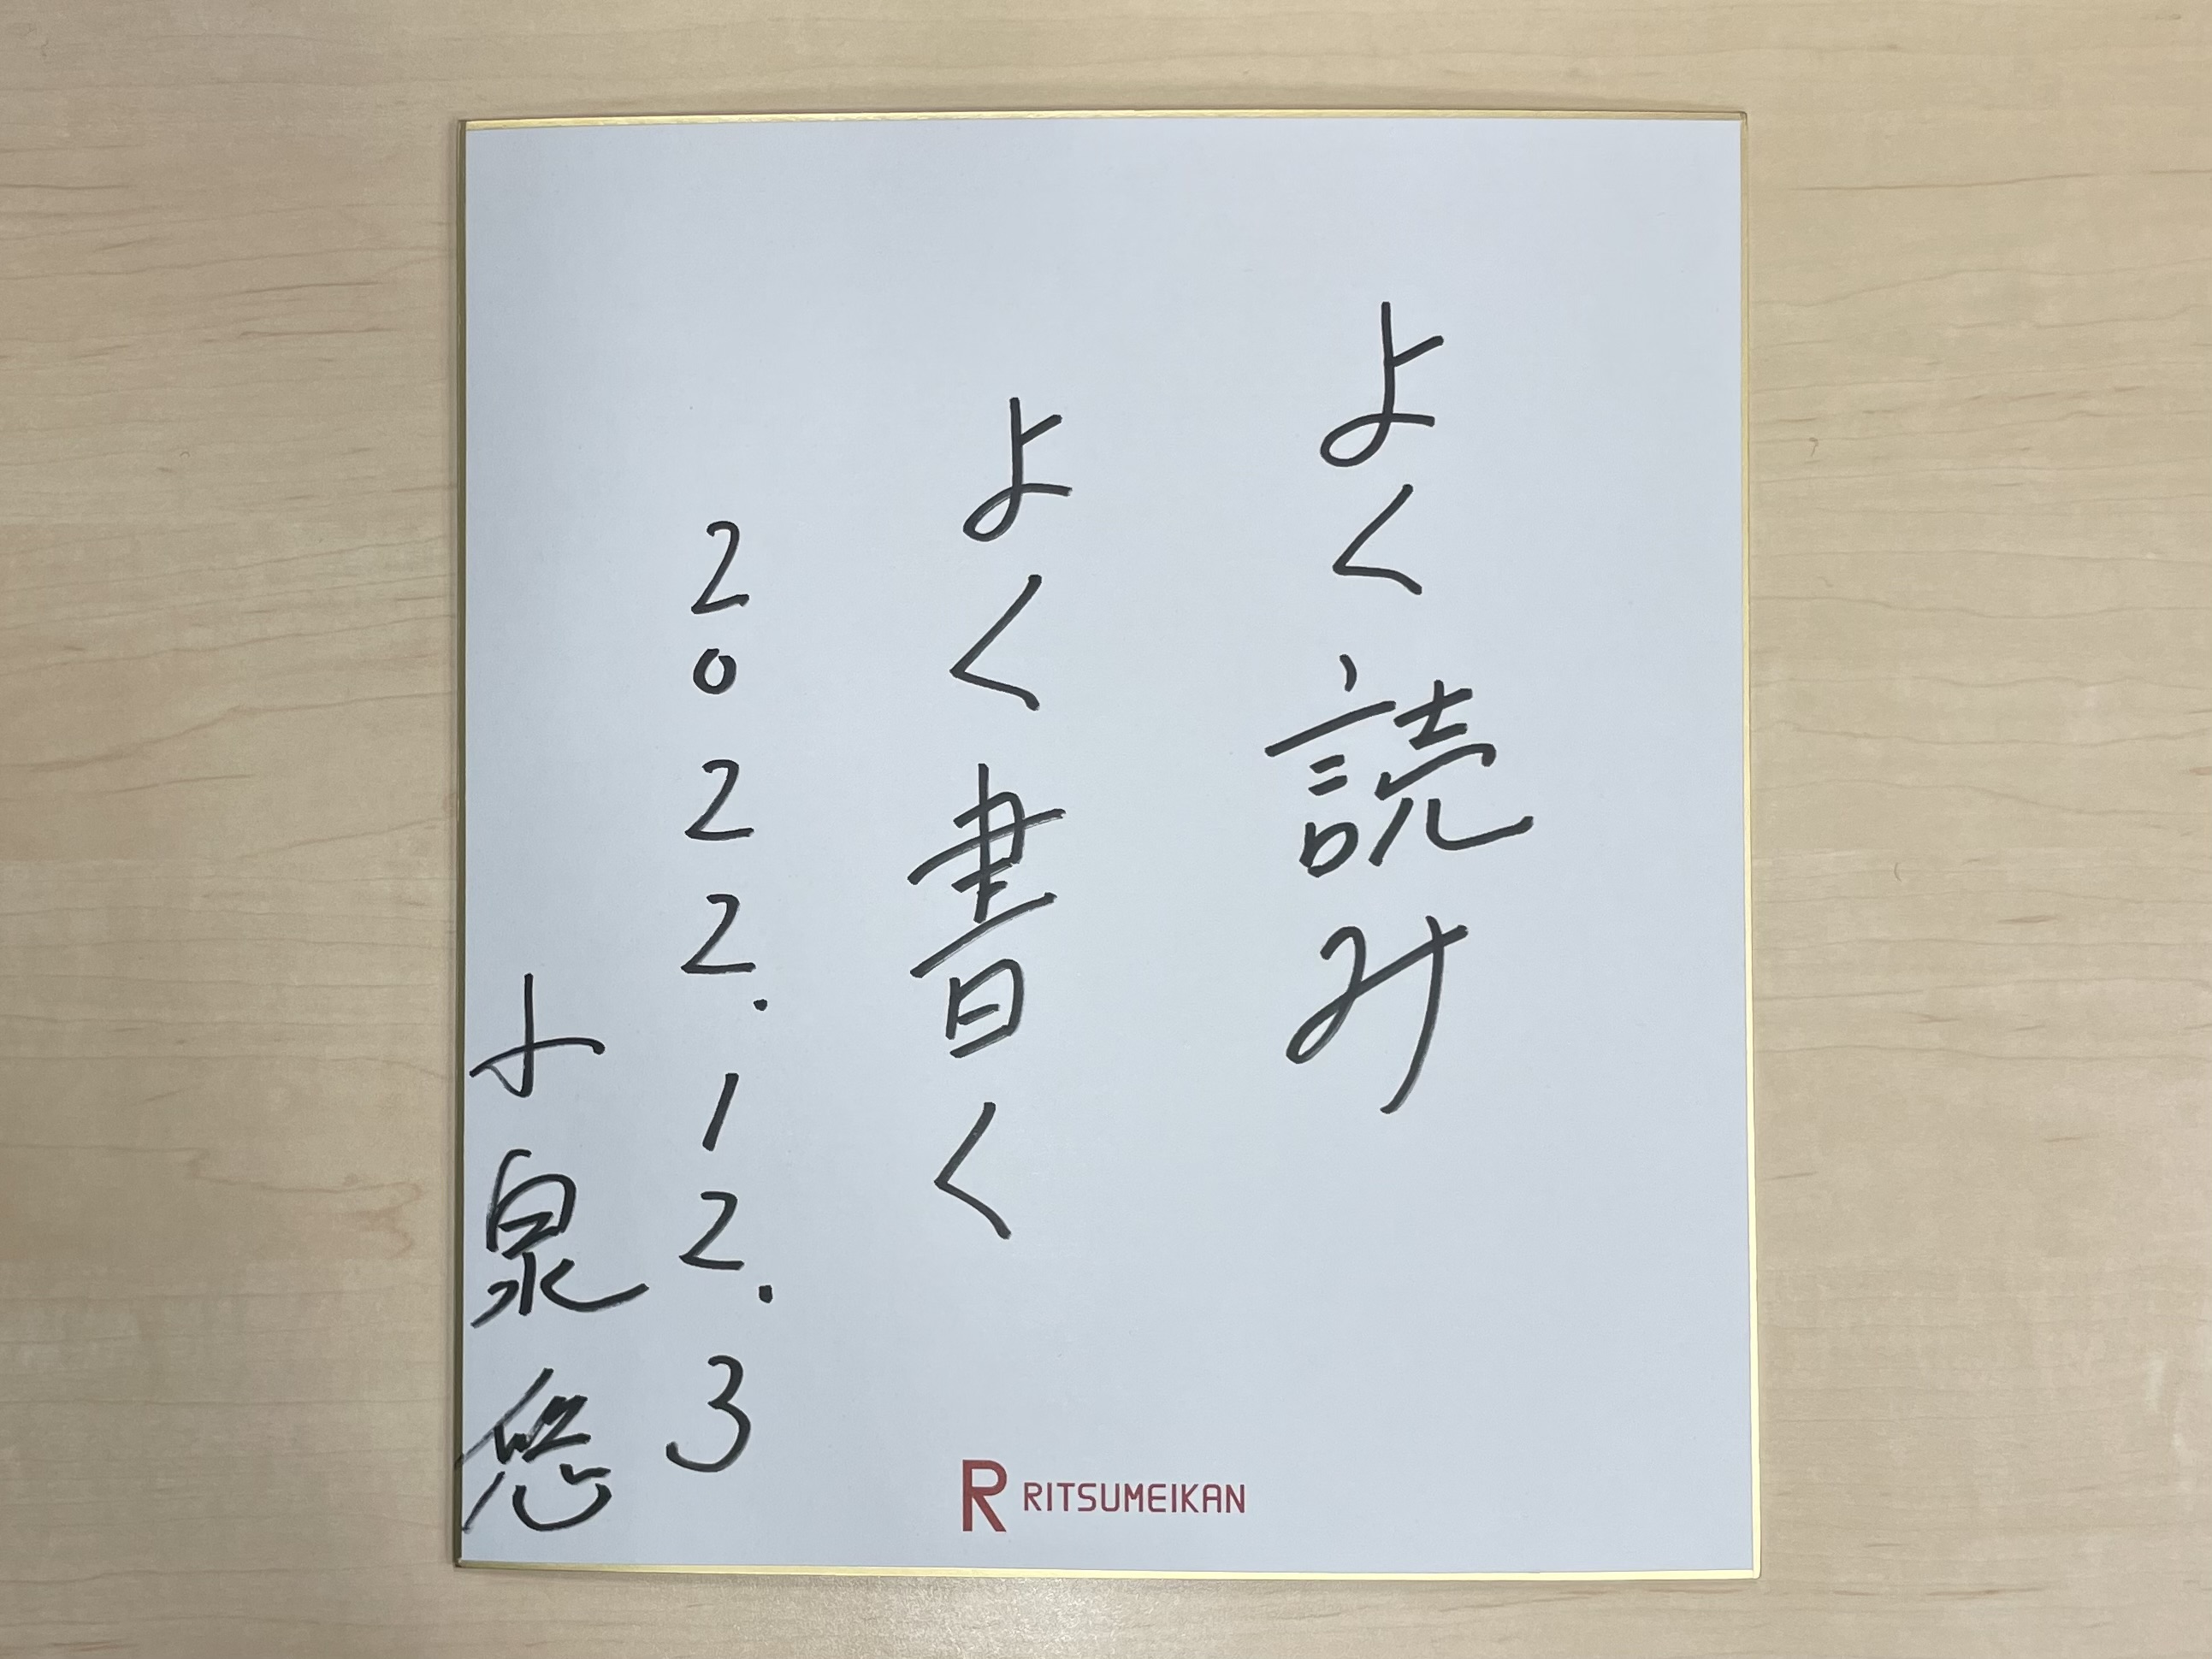 よく読み
よく書く
2022.12.3
小泉悠
R RITSUMEIKAN